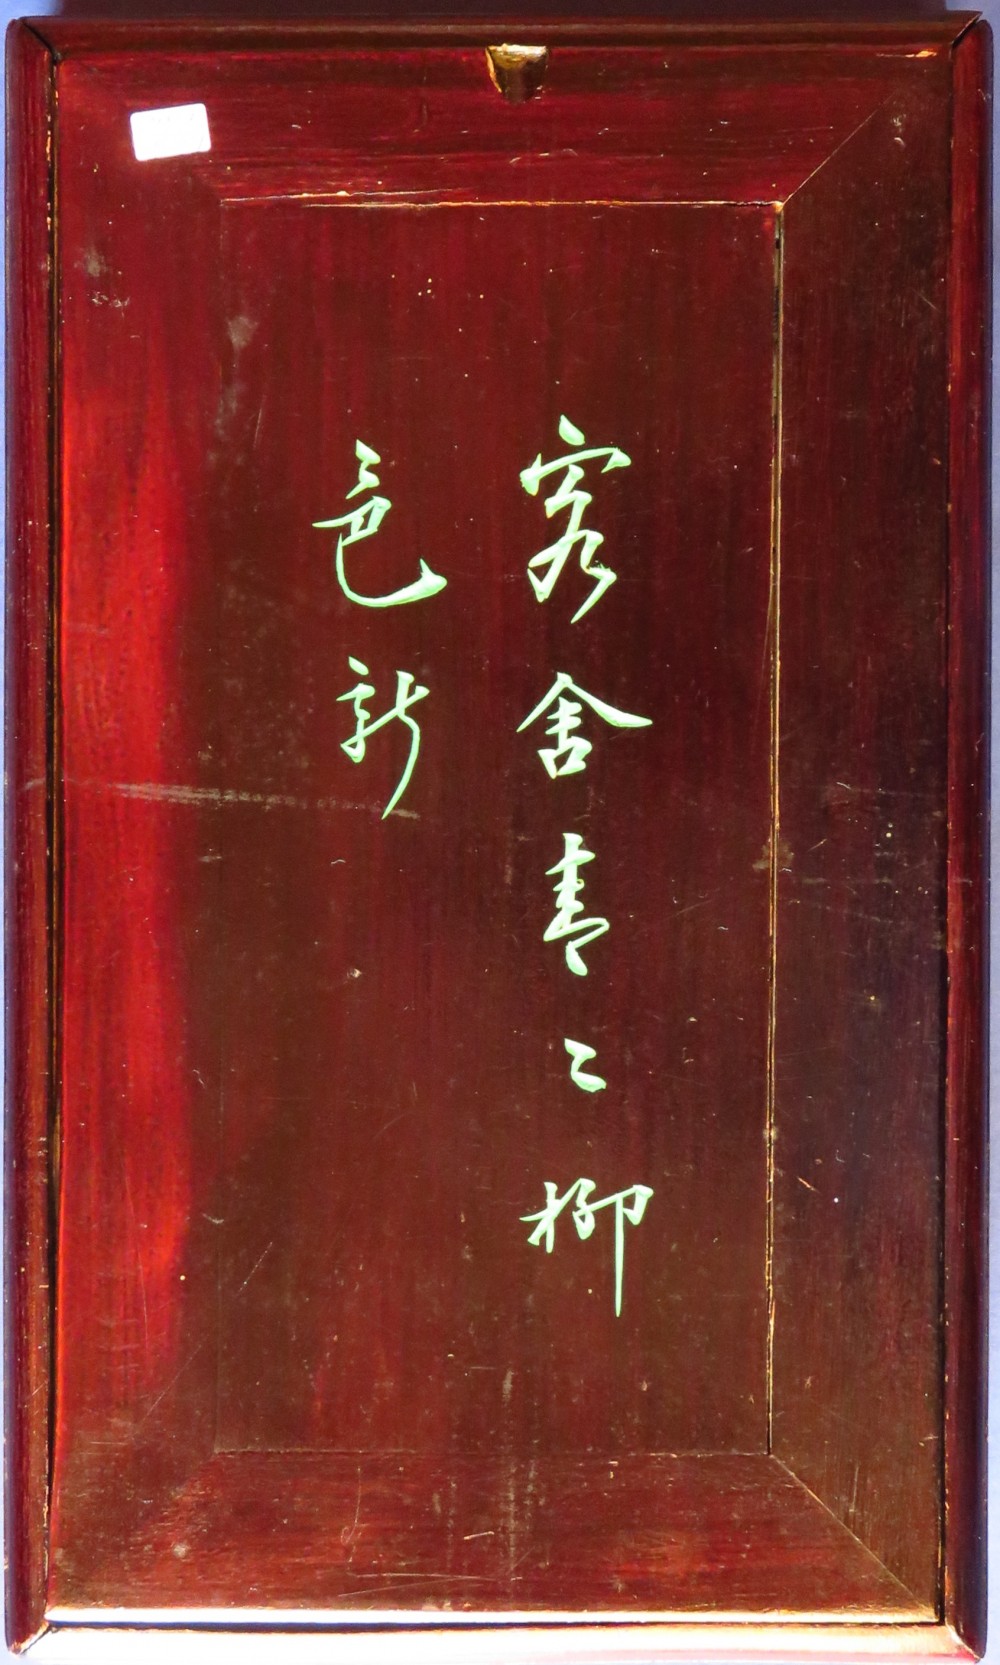 客舍青々柳
色新